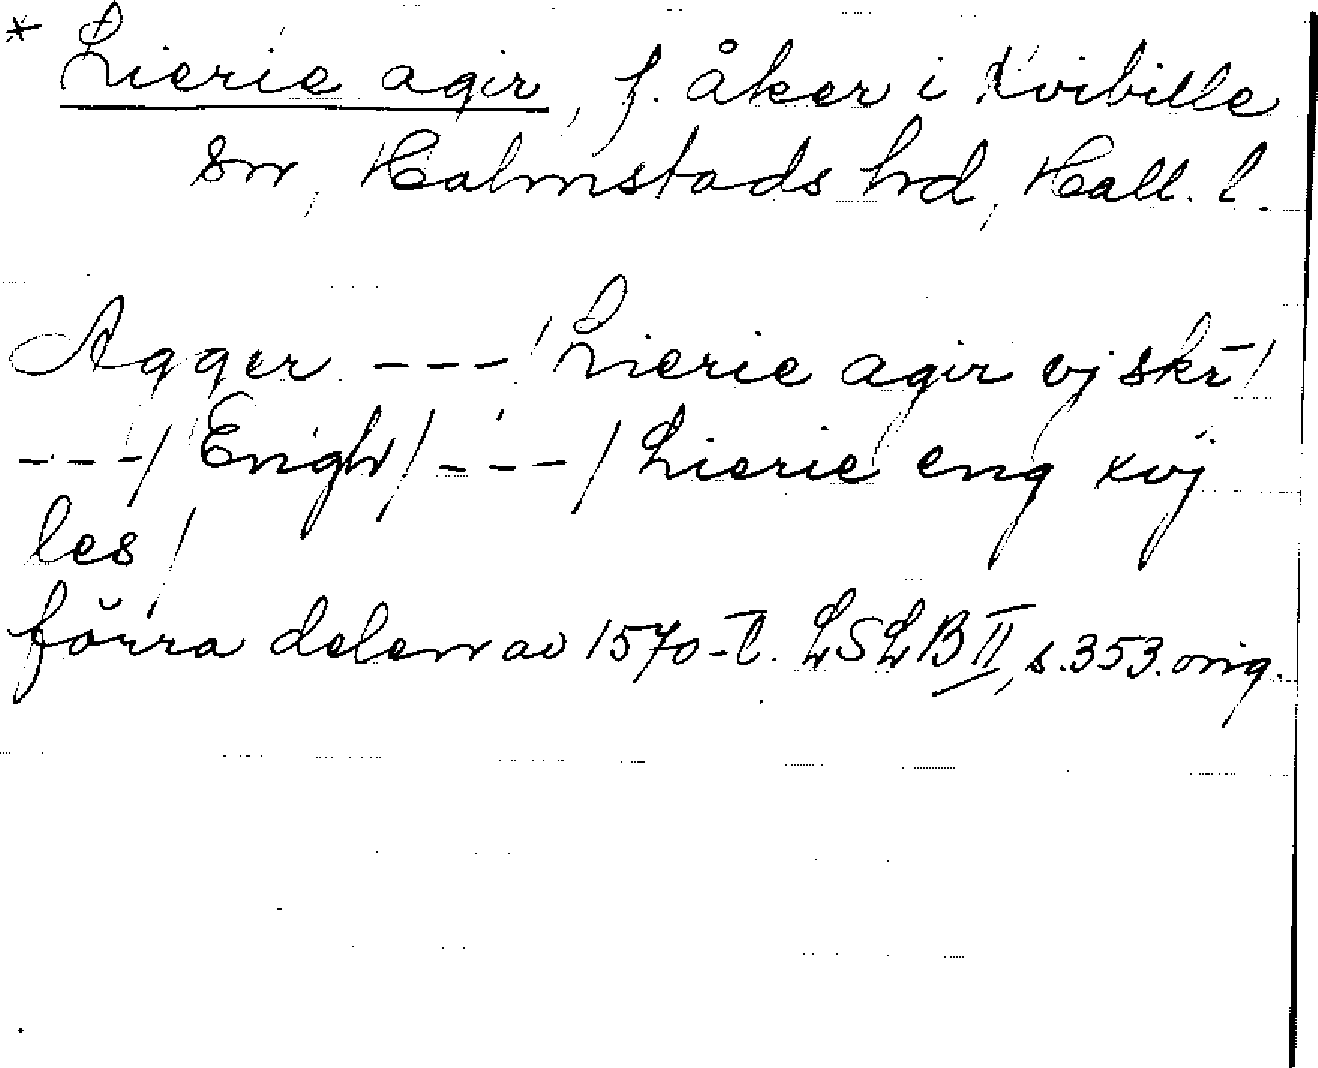 * Lierie agir, f. åker i Kvibille
sn, Halmstads hrd, Hall. l.
Agger --- / Lierie agir vj skr̄ /
--- / Engh / --- / Lierie eng xvj
les /
förra delen av 1570-t. LSLB II, s. 353. orig.